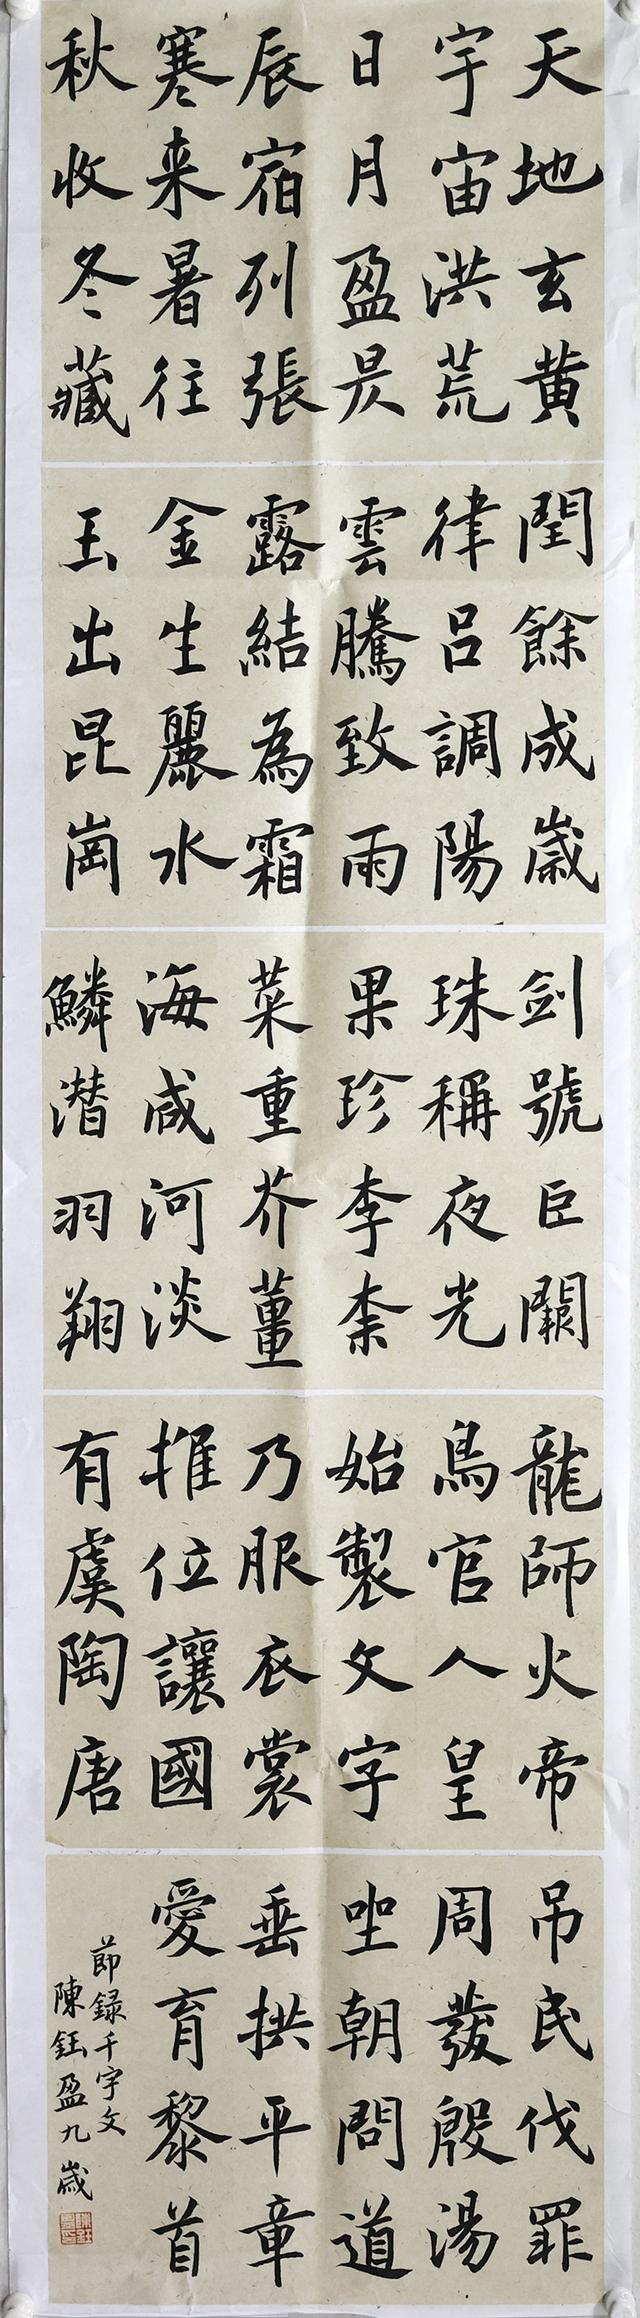 天地玄黄
宇宙洪荒
日月盈昃
辰宿列張
寒来暑往
秋收冬藏
閏餘成歲
律呂調陽
雲騰致雨
露結為霜
金生麗水
玉出昆崗
剑號臣闕
珠稱夜光
果珍李柰
菜重芥薑
海咸河淡
鱗潛羽翔
龍師火帝
鳥官人皇
始製文字
乃服衣裳
推位讓國
有虞陶唐
吊民伐罪
周發殷湯
坐朝問道
垂拱平章
愛育黎首
節録千字文
陳鈺盈九歲